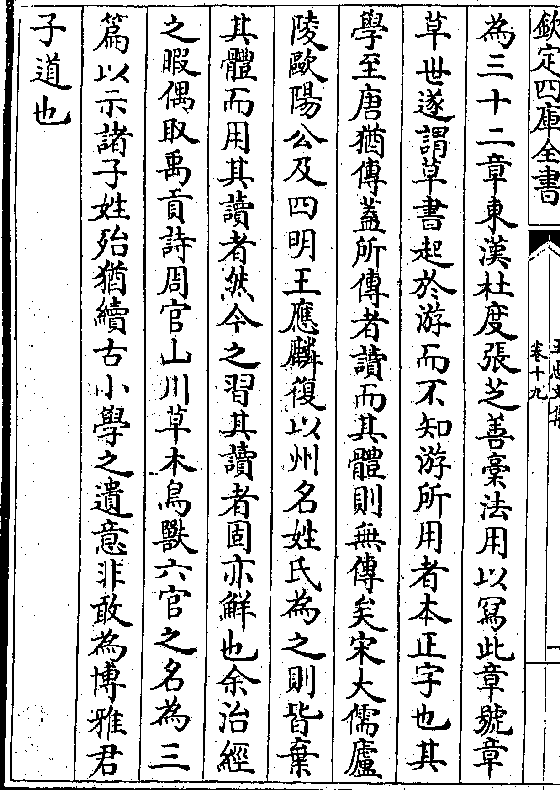 欽定四庫全書
卷十九
為三十二章東漢杜度張芝善稾法用以冩此章號章
草世遂謂草書起於游而不知游所用者本正字也其
學至唐猶傳葢所傳者讀而其體則無傳矣宋大儒廬
陵歐陽公及四明王應麟復以州名姓氏為之則皆棄
其體而用其讀者然今之習其讀者固亦鮮也余治經
之暇偶取禹貢詩周官山川草木鳥獸六官之名為三
篇以示諸子姓殆猶續古小學之遺意非敢為博雅君
子道也